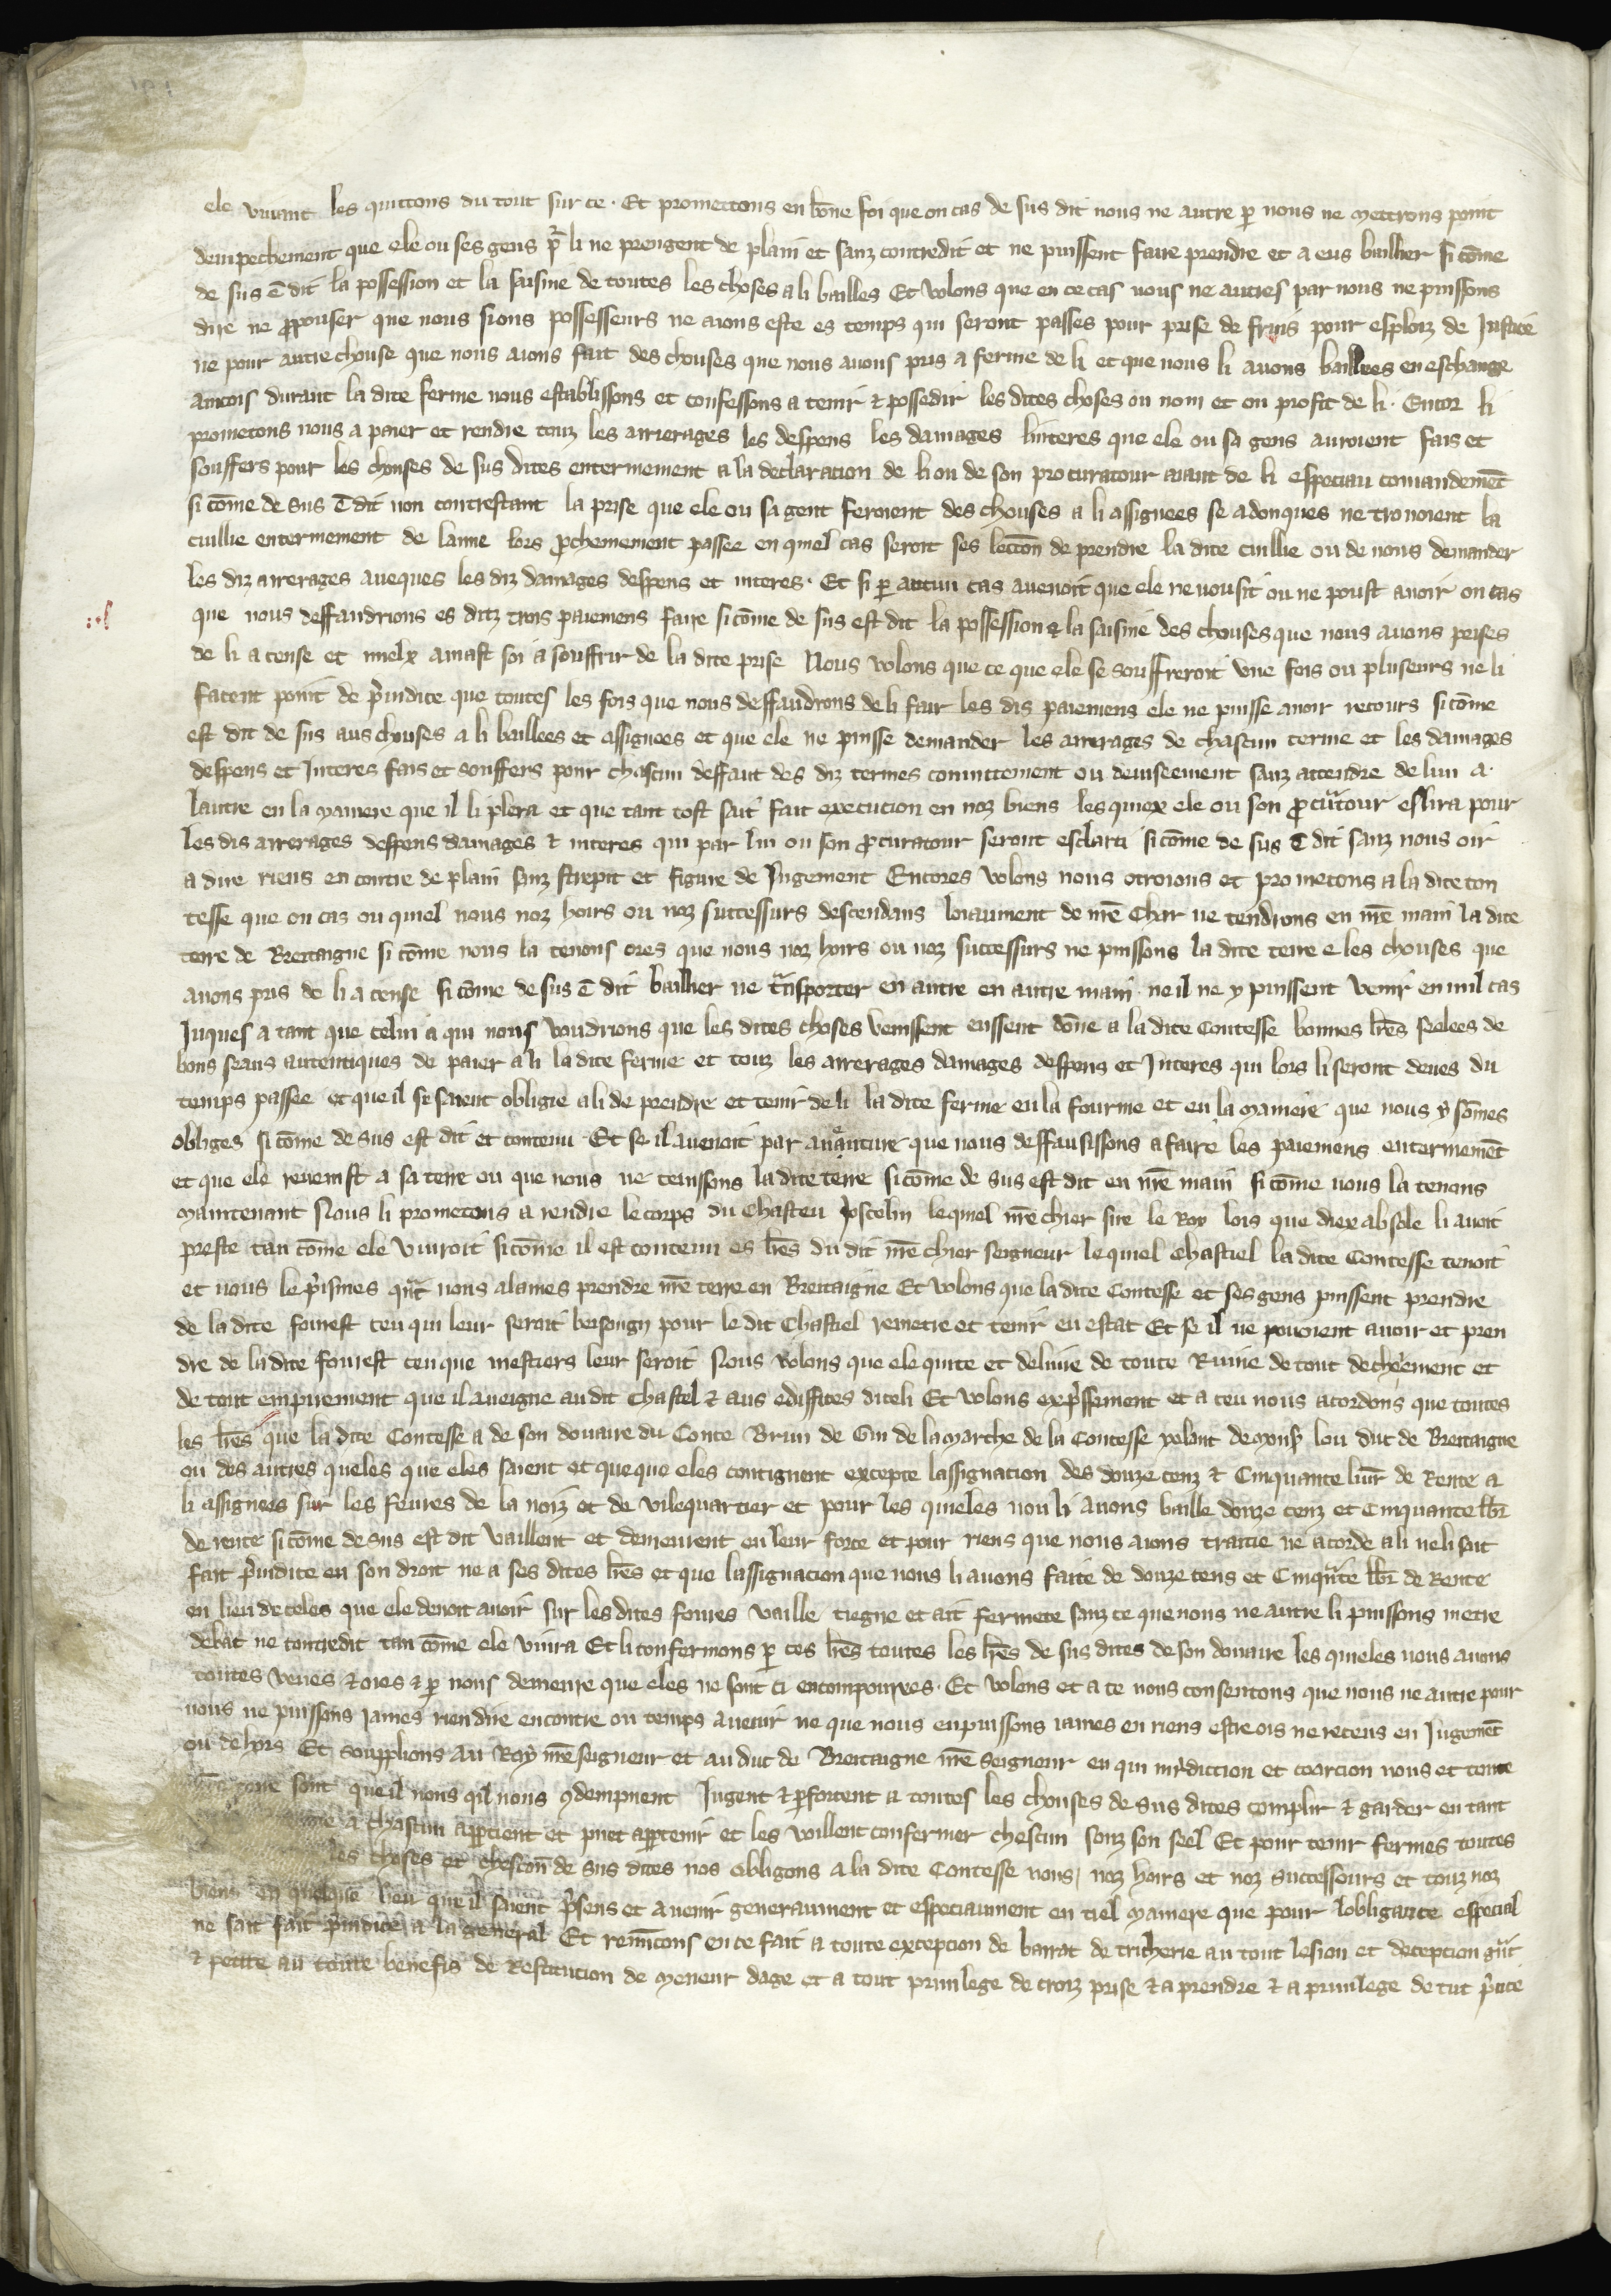 ele vivant les quittons du tout sur ce. Et promettons en bōne foi que on cas de sus dit nous ne autre p̱ nous ne mettrons point
dempechement que ele ou ses gens p̱ li ne prengent de plain et sanz contredit et ne puissent faire prendre et a eus baillier si cōme
de sus ē dit la possession et la saisine de toutes les choses a li bailles Et volons que en ce cas nous ne autres par nous ne puissons
dire ne ꝓpouser que nous sions possesseurs ne aions este es temps qui seront passes pour prise de fruis pour esploiz de Justice
ne pour autre chouse que nous aions fait des chouses que nous avons pris a ferme de li et que nous li avons baillees en eschange
aincois durant la dite ferme nous establissons et confessons a tenir ⁊ possedir les dites choses ou nom et ou profit de li. Encor li
prometons nous a paier et rendre touz les arrierages les despens les damages linteres que ele ou sa gens auroient fais et
souffers pour les chouses de sus dites enterinement a la declaration de li ou de son procuratour aiant de li especiau comandemēt
si cōme de sus ē dit non contrestant la prise que ele ou sa gent feroient des chouses a li assignees se adonques ne trovoient la
cuillie enterinement de lanne lors ꝓchenement passee en quiel cas seroit ses lectiōn de prendre la dite cuillie ou de nous demander
les diz arrerages aveques les diz damages despens et interes. Et si p̱ aucun cas avenoit que ele ne vousit ou ne poust avoir on cas
que nous deffaudrions es ditz trois paiemens faire si cōme de sus est dit la possession ⁊ la saisine des chouses que nous avons prises
de li a cense et mielx amast soi a souffrir de la dite prise Nous volons que ce que ele se souffreroit une fois ou pluseurs ne li
facent point de p̄iudice que toutes les fois que nous deffaudrons de li fair les dis paiemens ele ne puisse avoir recours si cōme
est dit de sus aus chouses a li baillees et assignees et que ele ne puisse demander les arrerages de chascun terme et les damages
despens et Interes fais et souffers pour chascun deffaut des diz termes coniuttement ou deviseement sanz attendre de lun a
lautre en la maniere que il li plera et que tant tost sait fait execucion en noz biens les quiex ele ou son ꝓcutour eslira pour
les dis arrerages despens damages ⁊ interes qui par lui ou son ꝓcuratour seront esclarci si cōme de sus ē dit sanz nous oir
a dire riens en contre de plain sanz strepit et figure de Jugement Encores volons nous otroions et prometons a la dite con
tesse que on cas ou quiel nous noz hoirs ou noz successurs descendans loiaument de nrē Char ne tendrons en nrē main la dite
terre de Bretaigne si cōme nous la tenons ores que nous noz hoirs ou noz successurs ne puissons la dite terre e les chouses que
avons pris de li a cense si cōme de sus ē dit baillier ne t̄nsporter en autre en autre main. ne il ne y puissent venir en nul cas
Juques a tant que celui a qui nous voudrions que les dites choses venissent eussent dōne a la dite Contesse bonnes lrēs seelees de
bons seaus autentiques de paier a li la dite ferme et touz les arrerages damages despens et Interes qui lors li seront deues du
temps passee et que il se saient obligie a li de prendre et tenir de li la dite ferme en la fourme et en la maniere que nous y sōmes
obliges si cōme de sus est dit et contenu. Et se il avenoit par avanture que nous deffausissons a faire les paiemens enterinemēt
et que ele revenist a sa terre ou que nous ne tenissons la dite terre si cōme de sus est dit en nrē main si cōme nous la tenons
maintenant Nous li prometons a rendre le corps du Chasteu Joscelin lequiel nrē chier sire le Roy lois que diex absole li avoit
preste tan cōme ele vivroit si cōme il est contenu es lrēs du dit nrē chier seigneur lequiel Chastiel la dite Contesse tenoit
et nous le p̄isimes qn̄t nous alames prendre nrē terre en Bretaigne Et volons que la dite Contesse et ses gens puissent prendre
de la dite fourest ceu qui leur seroit besongn pour le dit Chastiel remetre et tenir en estat Et se il ne povoient avoir et pren
dre de la dite fourest ceu que mestiers leur seroit Nous volons que ele quite et delivre de toute Ruine de tout decheement et
de tout empirement que il aveigne au dit Chastel ⁊ aus ediffices diceli Et volons exp̄ssement et a ceu nous acordons que toutes
les lrēs que la dite Contesse a de son douaire du Conte Brun de Gui de la Marche de la Contesse yolant de Mons̄ lou duc de Bretaigne
ou des autres queles que eles saient et queque eles contignent excepte lassignation des douze cenz ⁊ Cinquante livr̄ de Rente a
li assignees sur les feures de la noiz et de vilequartier et pour les quieles nou li avons baille douze cenz et Cinquante lbr̄
de rente si cōme de sus est dit vaillent et demeurent en leur force et pour riens que nous aions traitie ne acorde a li ne li soit
fait p̄iudice en son droit ne a ses dites lrēs et que lassignacion que nous li avons faite de douze cens et Cinqūte lbr̄ de Rente
en lieu de celes que ele devoit avoir sur les dites foures vaille tiegne et ait fermete sanz ce que nous ne autre li puissons metre
debat ne contredit tan cōme ele vivra Et li confermons p̱ ces lrēs toutes les lrēs de sus dites de son douaire les quieles nous avons
toutes veues ⁊ oies ⁊ p̱ nous demeure que eles ne sont ci encorpourees. Et volons et a ce nous consentons que nous ne autre pour
nous ne puissons iames rien dire encontre ou temps avenir ne que nous en puissons iames en riens estre ois ne receus en Jugemēt
ou dehors Et soupplions au Roy nrē seigneur et au duc de Bretaigne nrē seigneur en qui iur̄diction et coercion nous et toute
terre sont que il nous qil nous ꝯdempnent Jugent ⁊ p̱forcent a toutes les chouses de sus dites complir ⁊ garder en tant
a chascun app̱tient et puet app̱tenir et les voillent confermer chescun souz son seel Et pour tenir fermes toutes
les choses et chescōn de sus dites nos obligons a la dite Contesse nous, noz hoirs et noz successours et touz noz
biens en quelque lieu que il saient p̄sens et avenir generaument et especiaument en tiel maniere que pour lobligance especial
ne sait fait p̄iudice a la general Et renūcons en ce fait a toute exception de barrat de tricherie au tout lesion et deception gn̄t
⁊ petite au toute benefis de Restitucion de meneur dage et a tout privilege de croiz prise ⁊ a prendre ⁊ a privilege de tut p̄nce